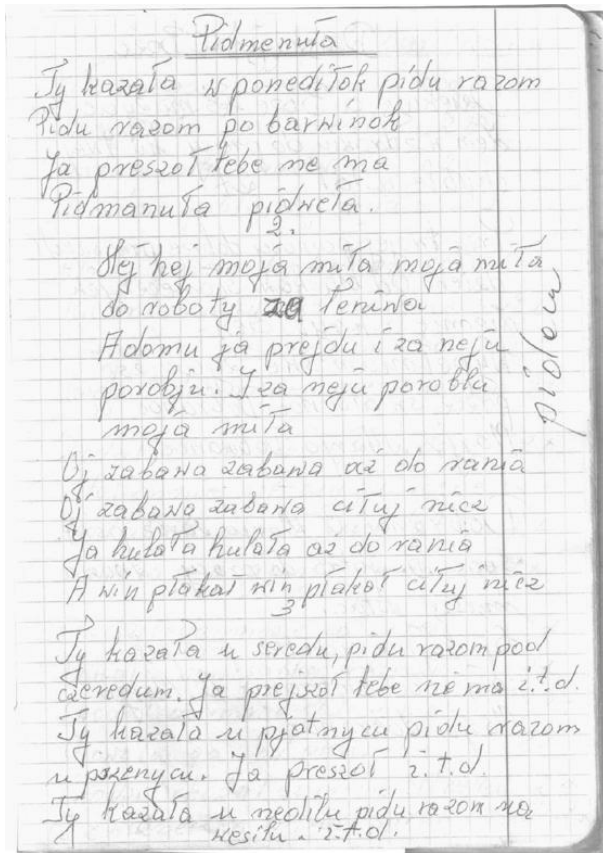 Pidmenuła
Ty kazała w ponediłok pidu razom
Pidu razom po barwinok
Ja preszoł tebe ne ma
Pidmanuła pidweła.
2.
Hej hej moja miła moja miła
do roboty za leniwa
A domu ja prejdu i za neju
porobju. I za neju poroblu
moja miła
Oj zabawa zabawa aż do rania
Oj zabawa zabawa ciłuj nicz
Ja hulała hulała aż do rania
A win płakał win płakoł ciłuj nicz
3
Ty kazała u seredu, pidu razom pod
czeredum. Ja prejszoł tebe ne ma i.t.d.
Ty kazała u pjatnycu pidu razom
u pszenycu. Ja preszoł i.t.d.
Ty kazała u nedilu pidu razom na
wesilu. i.t.d.